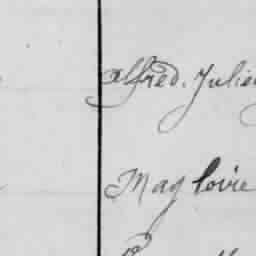 Alfred. Julie
Magloire